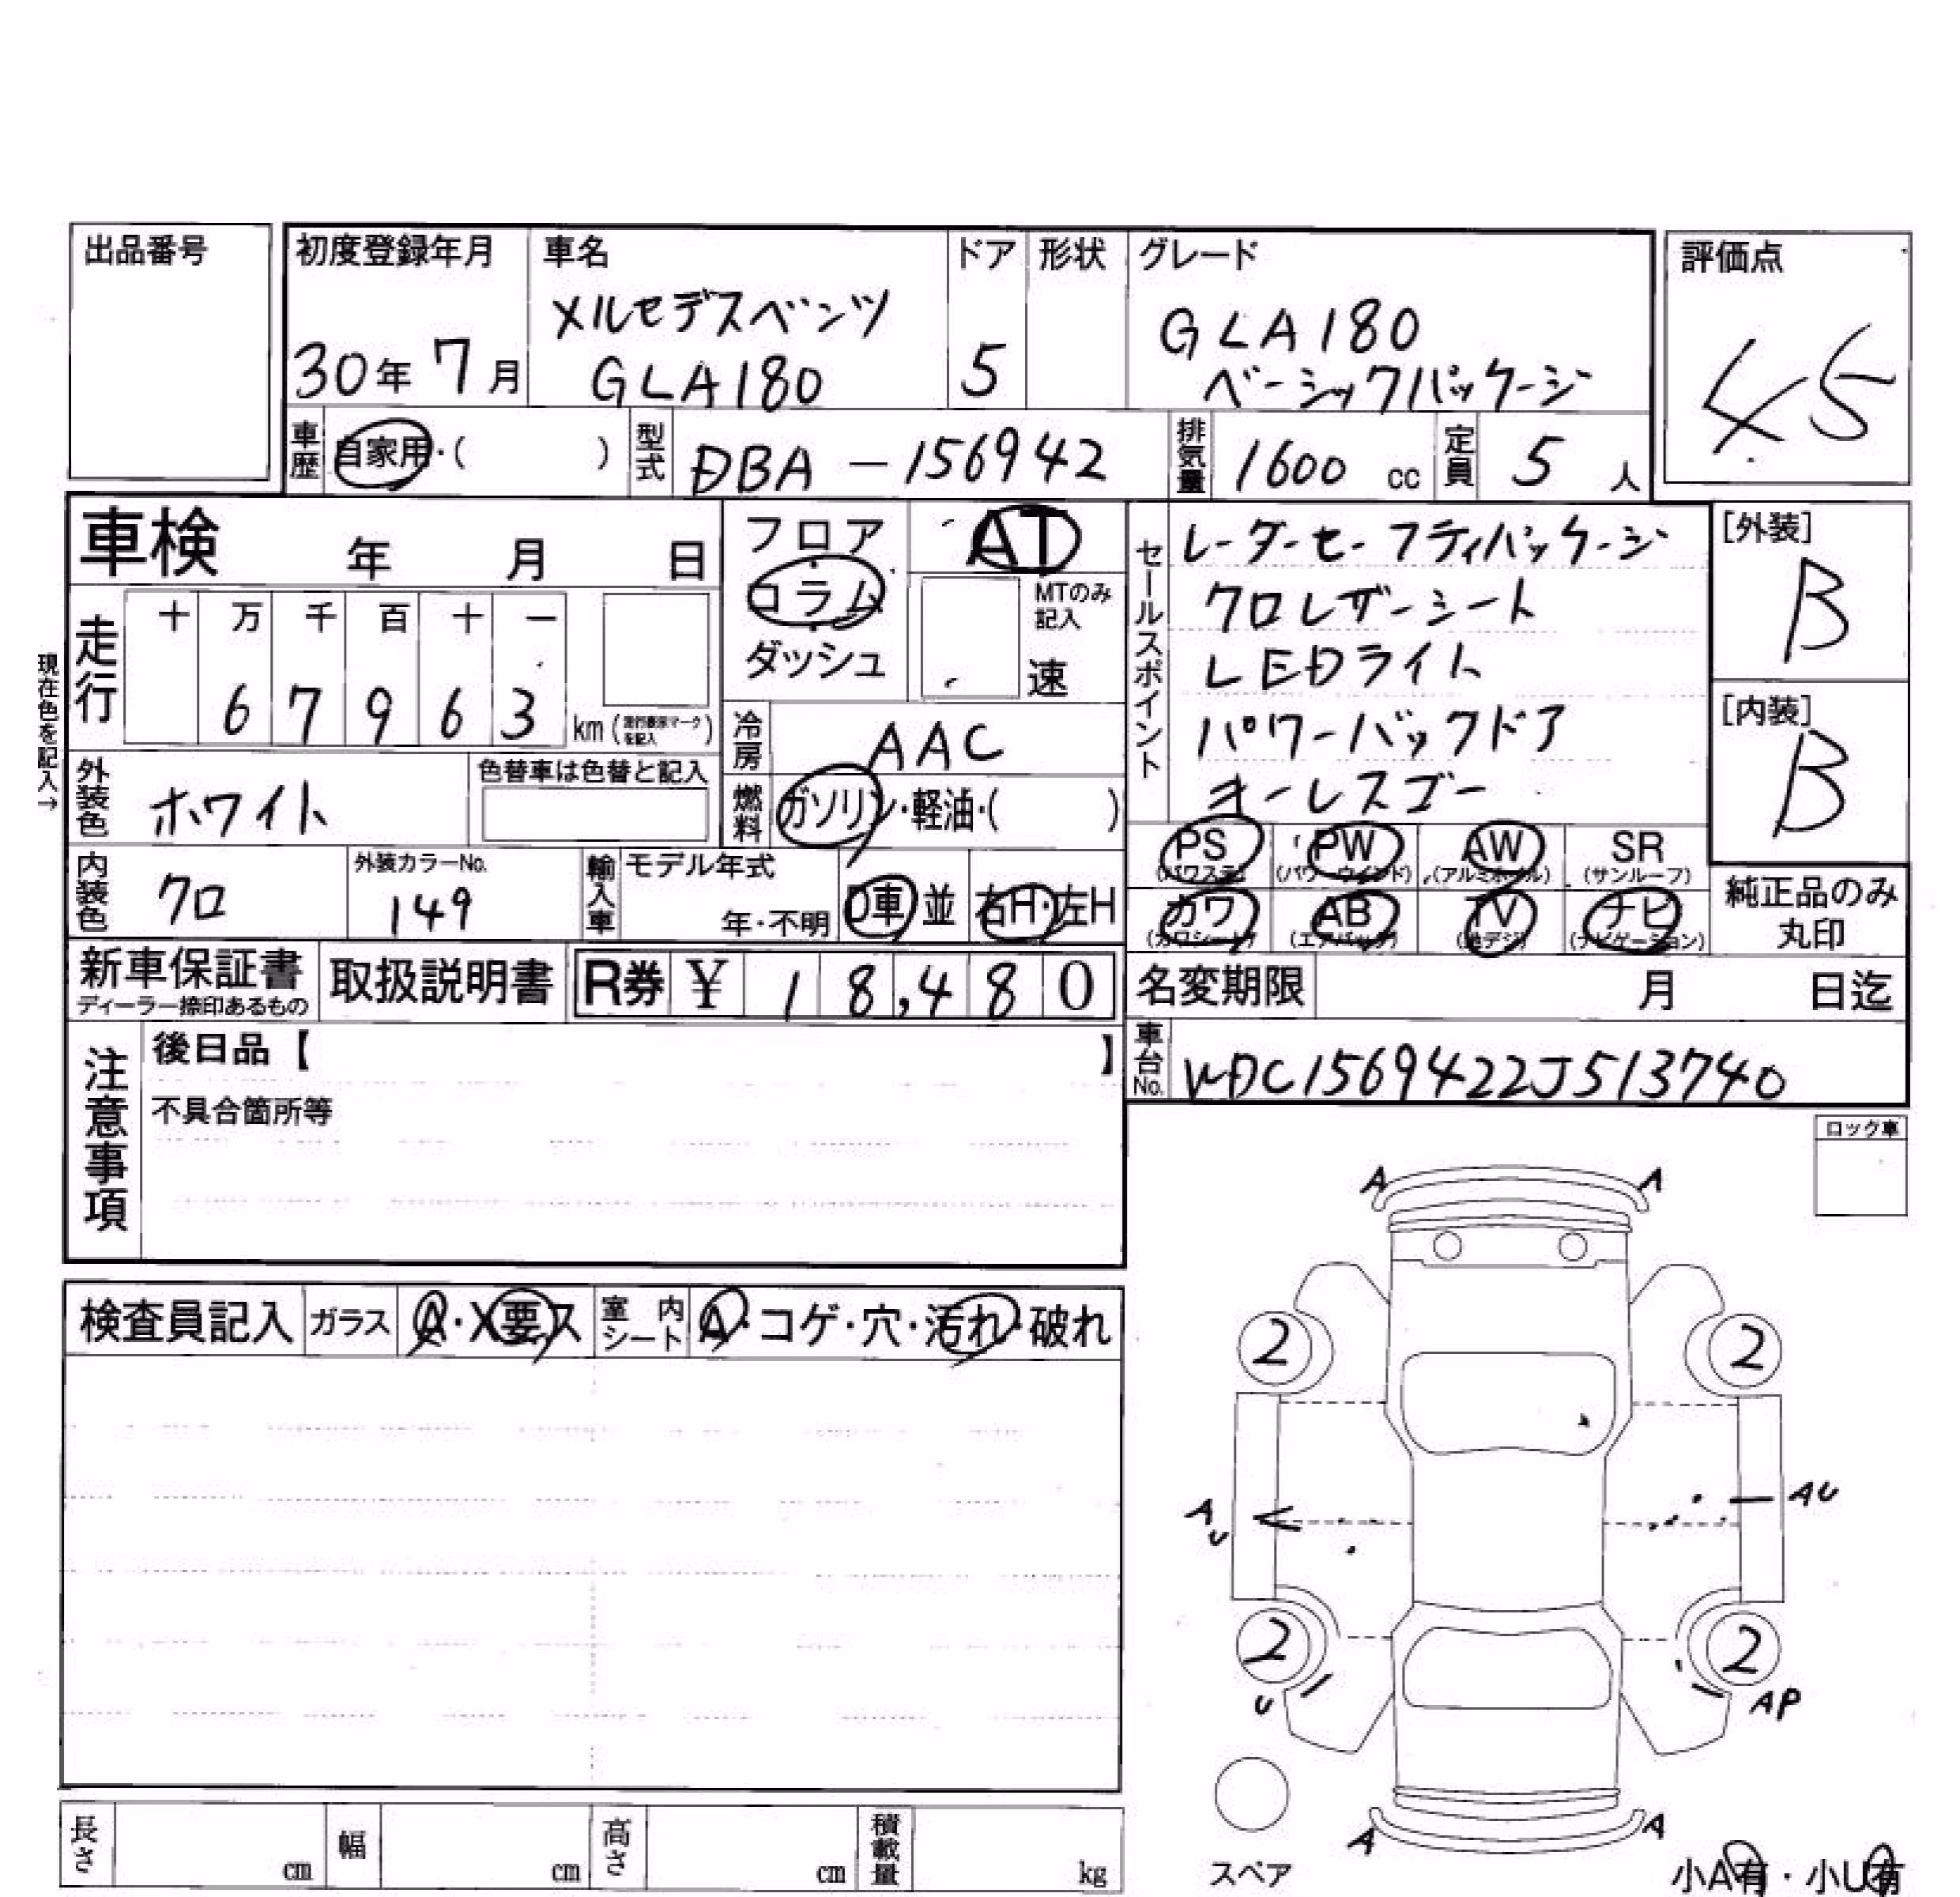 出品番号
初度登録年月
30年 7月
車名
メルセデスベンツ
GLA180
ドア
5
形状
グレード
GLA180
ベーシックパッケージ
評価点
4.5
車歴
自家用・( )
型式
DBA-156942
排気量
1600 cc
定員
5 人
車検 年 月 日
フロア
コラム
ダッシュ
AT
MTのみ
記入
速
セールスポイント
レーダーセーフティパッケージ
クロレザーシート
LEDライト
パワーバックドア
キーレスゴー
[外装]
B
[内装]
B
現在色を記入→
走行
十 万 千 百 十 一
6 7 9 6 3
km(走行表示マークを記入)
冷房
AAC
外装色
ホワイト
色替車は色替と記入
燃料
ガソリン・軽油・( )
PS
(パワステ)
PW
(パワーウインド)
AW
(アルミホイル)
SR
(サンルーフ)
カワ
(カワシート)
AB
(エアバッグ)
TV
(地デジ)
ナビ
(ナビゲーション)
純正品のみ
丸印
内装色
クロ
外装カラーNo.
149
輸入車
モデル年式
年・不明
D車 並
右H・左H
新車保証書
ディーラー捺印あるもの
取扱説明書
R券 ¥ 18,480
名変期限 月 日迄
車台No.
WDC1569422J513740
注意事項
後日品【 】
不具合箇所等
ロック車
検査員記入
ガラス
A・X要ス
室内
シート
A・コゲ・穴・汚れ・破れ
A
A
2
2
AU
AU
2
2
U
AP
A
A
スペア
小A有・小U有
長さ cm
幅 cm
高さ cm
積載量 kg